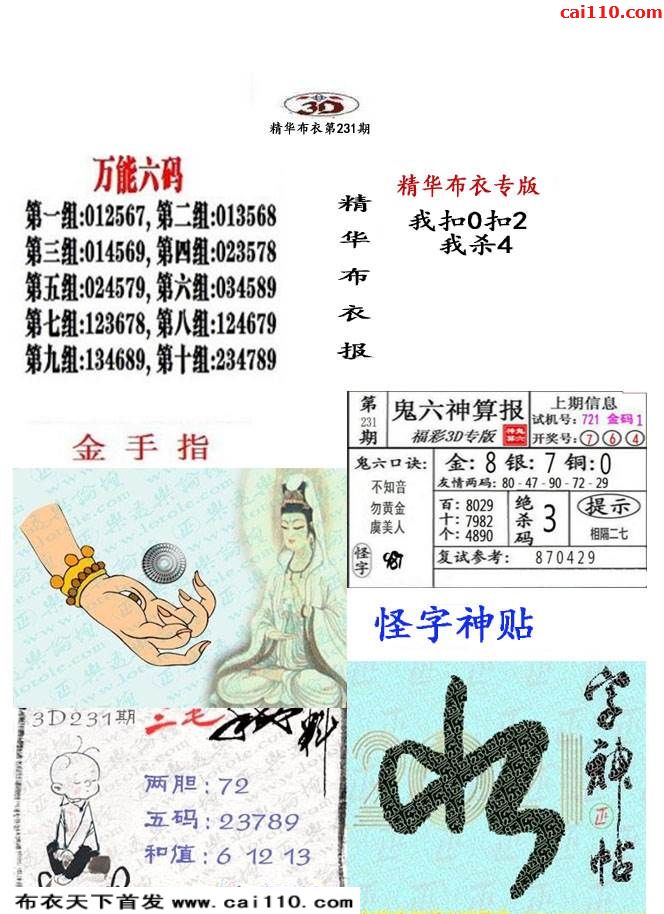 cai110.com
3D
精华布衣第231期
万能六码
第一组:012567, 第二组:013568
第三组:014569, 第四组:023578
第五组:024579, 第六组:034589
第七组:123678, 第八组:124679
第九组:134689, 第十组:234789
精华布衣报
精华布衣专版
我扣0扣2
我杀4
第231期
鬼六神算报
福彩3D专版
上期信息
试机号: 721 金码1
开奖号: 7 6 4
鬼六口诀:
不知音
勿黄金
虞美人
金: 8 银: 7 铜: 0
友情两码: 80-47-90-72-29
百: 8029
十: 7982
个: 4890
绝杀码 3
提示
相隔二七
怪字
复试参考: 870429
金手指
怪字神贴
3D231期
三毛
料
两胆: 72
五码: 23789
和值: 6 12 13
字神帖
布衣天下首发 www.cai110.com